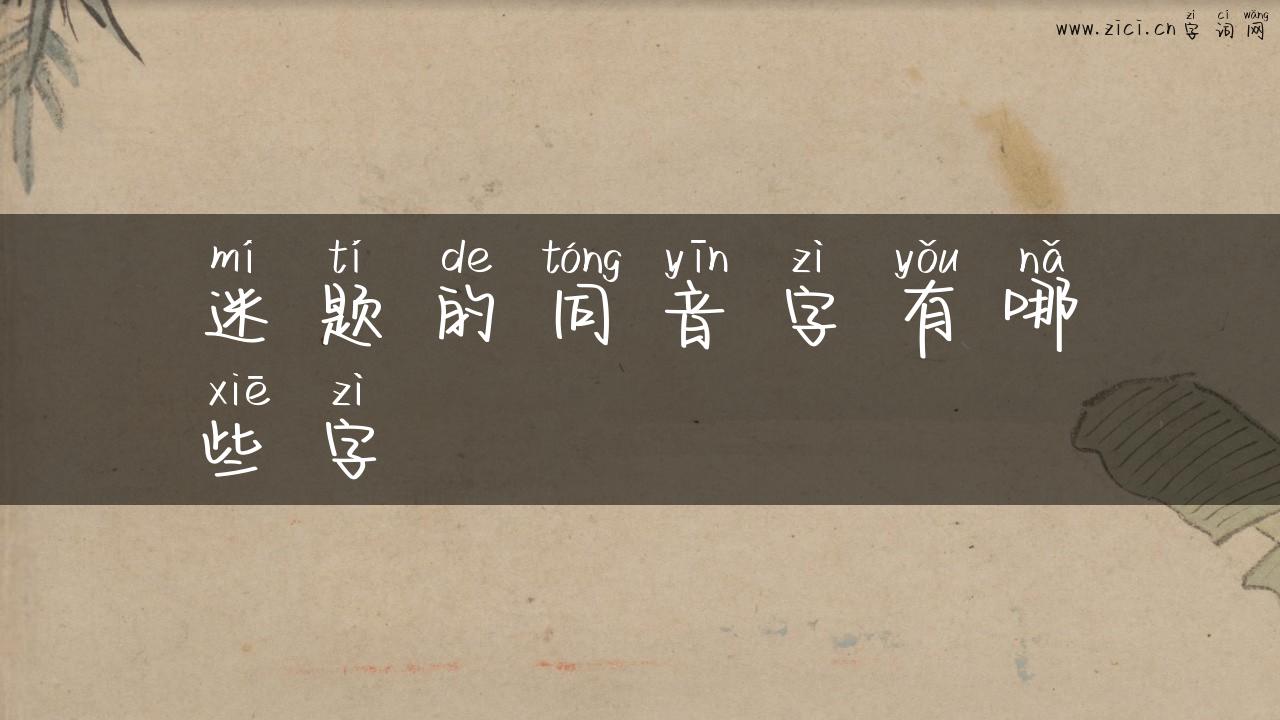 zì cí wǎng
www.zici.cn 字词网
mí tí de tóng yīn zì yǒu nǎ
迷题的同音字有哪
xiē zì
些字